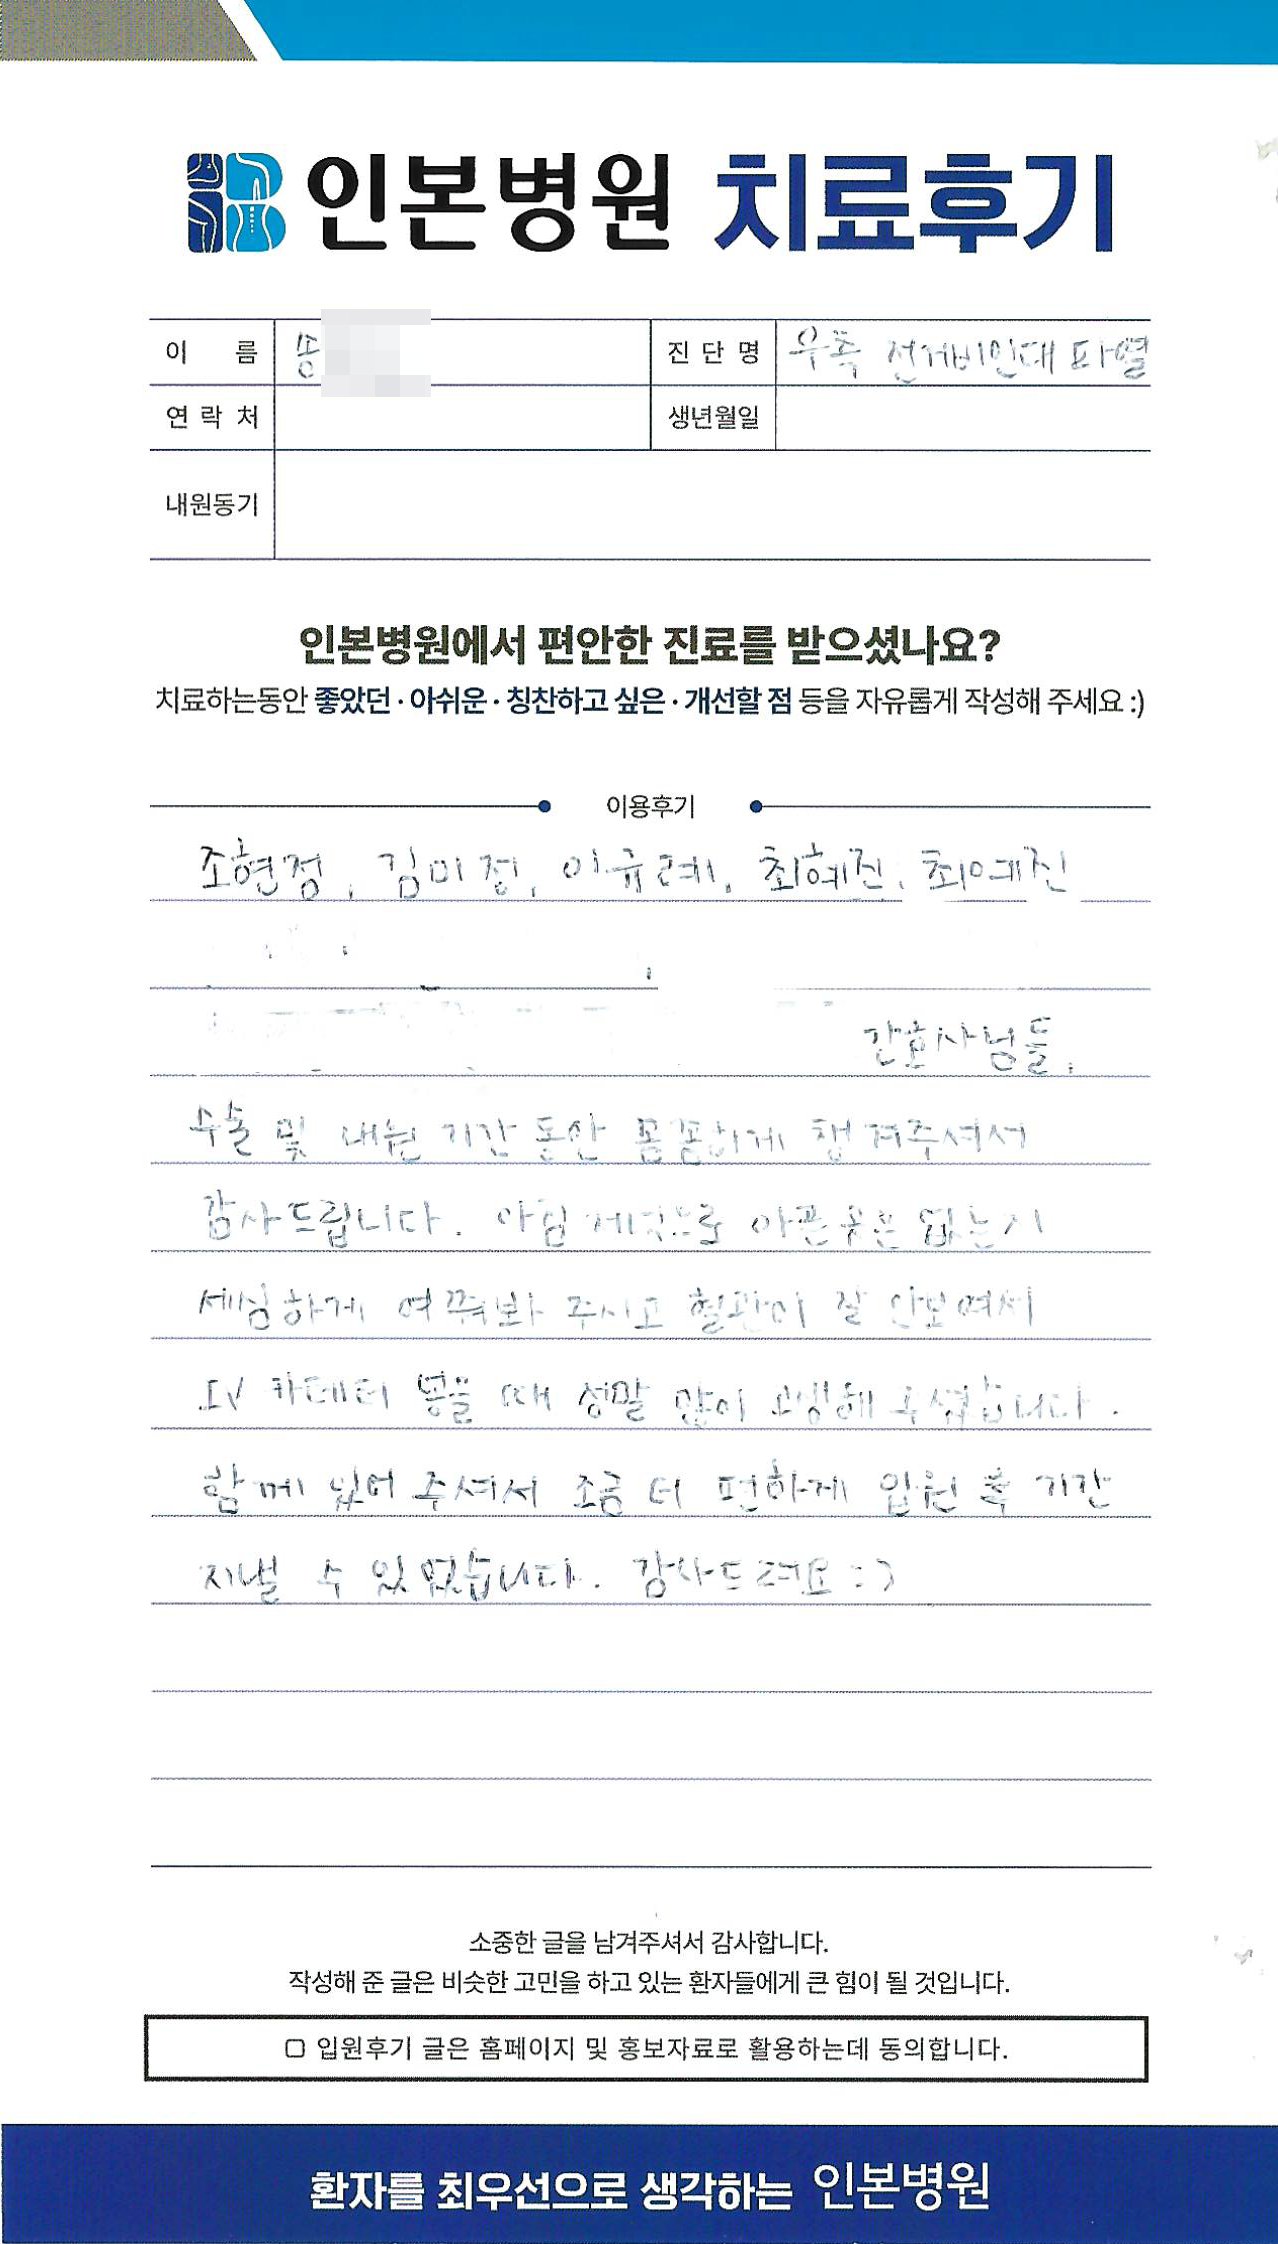 인본병원 치료후기
이 름 송
진 단 명 우측 전거비인대 파열
연 락 처
생년월일
내원동기
인본병원에서 편안한 진료를 받으셨나요?
치료하는동안 좋았던 · 아쉬운 · 칭찬하고 싶은 · 개선할 점 등을 자유롭게 작성해 주세요 :)
이용후기
조현정, 김미정, 이규례, 최혜진, 최예진
간호사님들,
수술 및 내원 기간 동안 꼼꼼하게 챙겨주셔서
감사드립니다. 아침 제것으로 아픈곳은 없는지
세심하게 여쭤봐 주시고 혈관이 잘 안보여서
IV 카테터 꽂을 때 정말 많이 고생해 주셨습니다.
함께 있어 주셔서 조금 더 편하게 입원 후 기간
지낼 수 있었습니다. 감사드려요 :)
소중한 글을 남겨주셔서 감사합니다.
작성해 준 글은 비슷한 고민을 하고 있는 환자들에게 큰 힘이 될 것입니다.
입원후기 글은 홈페이지 및 홍보자료로 활용하는데 동의합니다.
환자를 최우선으로 생각하는 인본병원